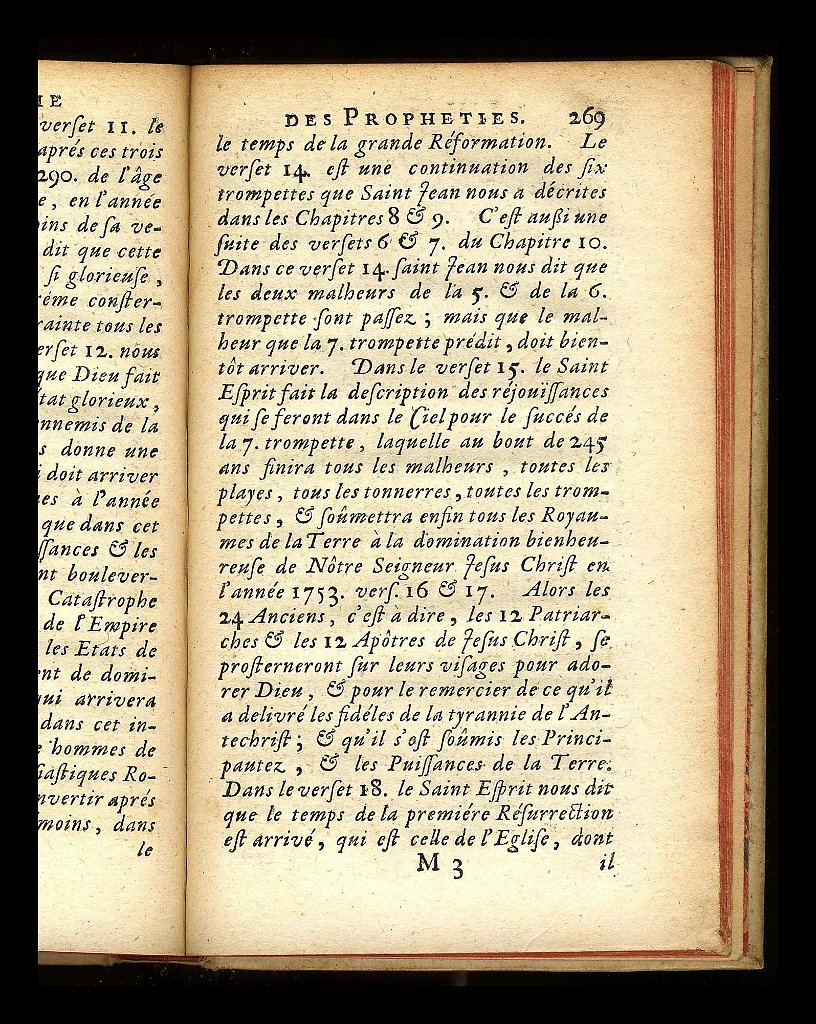 HE
verſet 11. le
aprés ces trois
290. de l'âge
e, en l'année
ins de ſa ve-
dit que cette
ſi glorieuſe,
réme conſter-
rainte tous les
erſet 12. nous
que Dieu fait
tat glorieux,
nnemis de la
s donne une
i doit arriver
es à l'année
que dans cet
ſſances & les
nt boulever-
Cataſtrophe
de l'Empire
les Etats de
nt de domi-
qui arrivera
dans cet in-
e hommes de
ſiaſtiques Ro-
nvertir aprés
émoins, dans
le
DES PROPHETIES. 269
le temps de la grande Réformation. Le
verſet 14. eſt une continuation des ſix
trompettes que Saint Jean nous a décrites
dans les Chapitres 8 & 9. C'eſt auſſi une
ſuite des verſets 6 & 7. du Chapitre 10.
Dans ce verſet 14. ſaint Jean nous dit que
les deux malheurs de la 5. & de la 6.
trompette ſont paſſez; mais que le mal-
heur que la 7. trompette prédit, doit bien-
tôt arriver. Dans le verſet 15. le Saint
Eſprit fait la deſcription des réjouïſſances
qui ſe feront dans le Ciel pour le ſuccés de
la 7. trompette, laquelle au bout de 245
ans finira tous les malheurs, toutes les
playes, tous les tonnerres, toutes les trom-
pettes, & ſoûmettra enfin tous les Royau-
mes de la Terre à la domination bienheu-
reuſe de Nôtre Seigneur Jeſus Chriſt en
l'année 1753. verſ. 16 & 17. Alors les
24 Anciens, c'eſt à dire, les 12 Patriar-
ches & les 12 Apôtres de Jeſus Chriſt, ſe
proſterneront ſur leurs viſages pour ado-
rer Dieu, & pour le remercier de ce qu'il
a delivré les fidéles de la tyrannie de l'An-
techriſt; & qu'il s'eſt ſoûmis les Princi-
pautez, & les Puiſſances de la Terre.
Dans le verſet 18. le Saint Eſprit nous dit
que le temps de la premiére Réſurrection
eſt arrivé, qui eſt celle de l'Egliſe, dont
M 3 il